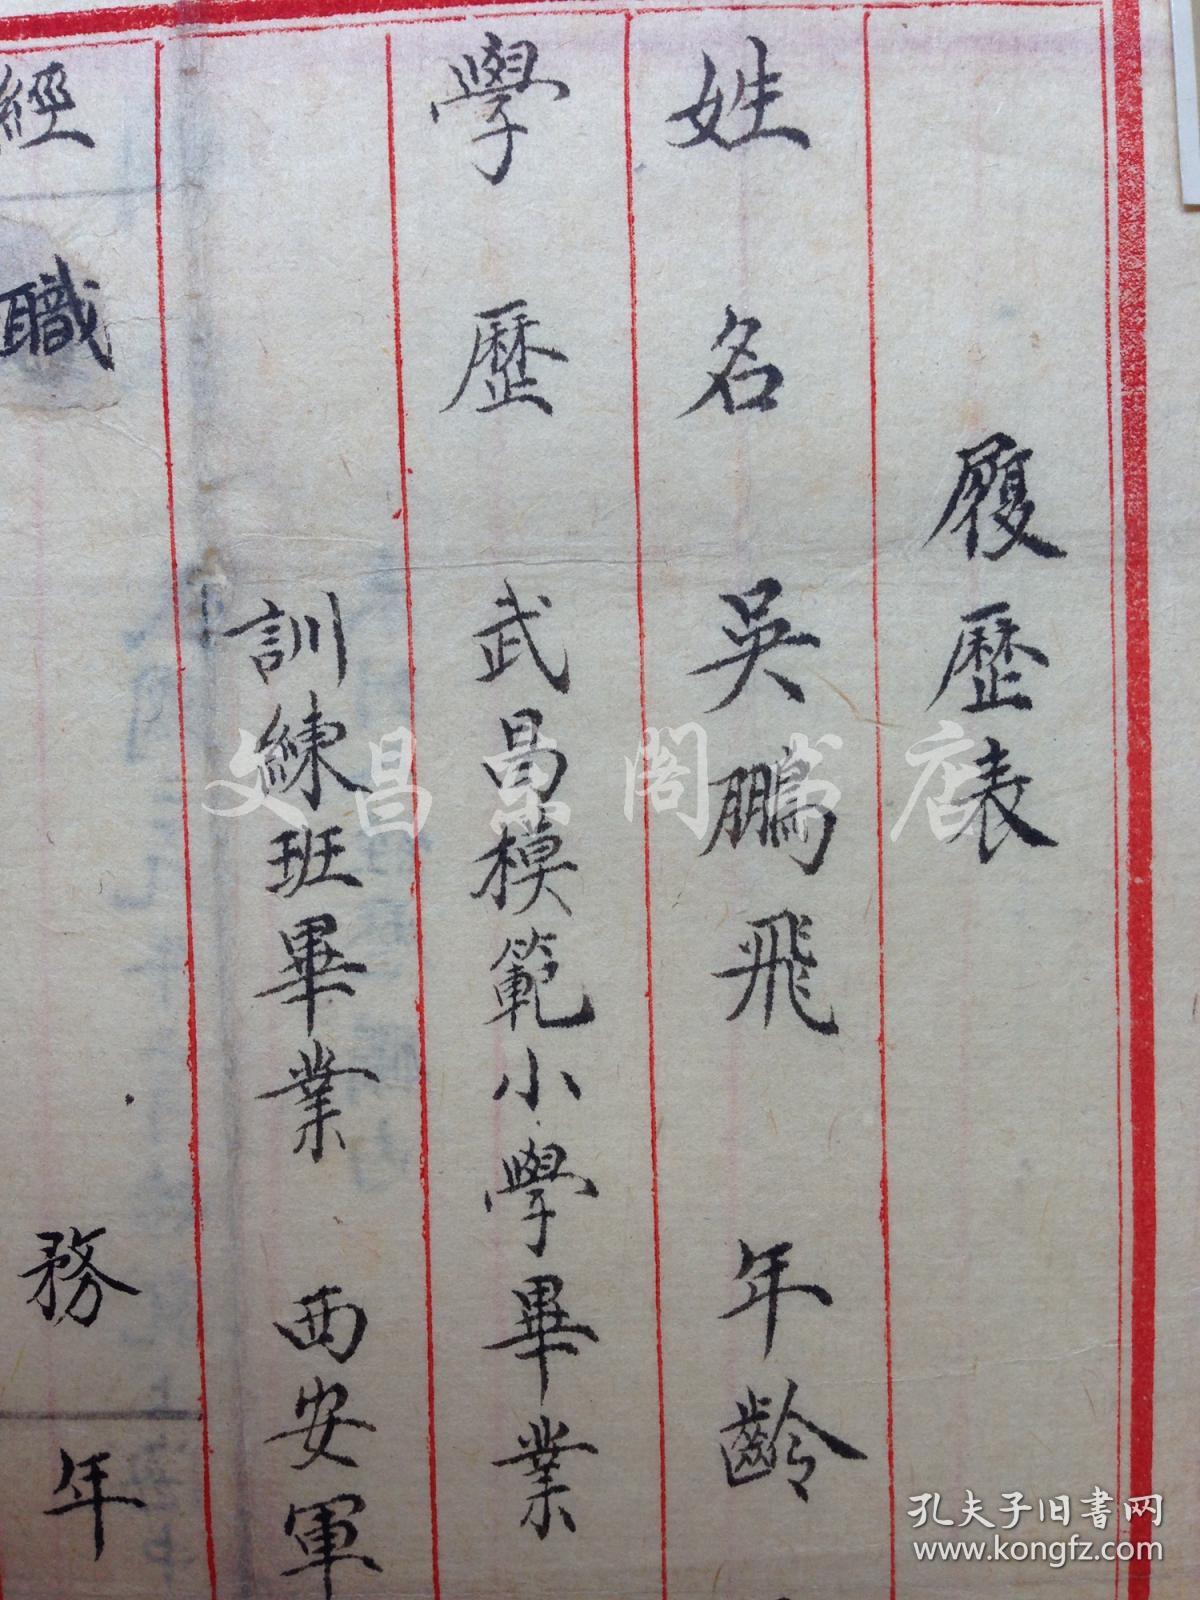 履歷表
姓名 吳鵬飛 年齡
學歷 武昌模範小學畢業
訓練班畢業 西安軍
經
職 務 年
文昌阁书店
孔夫子旧书网
www.kongfz.com